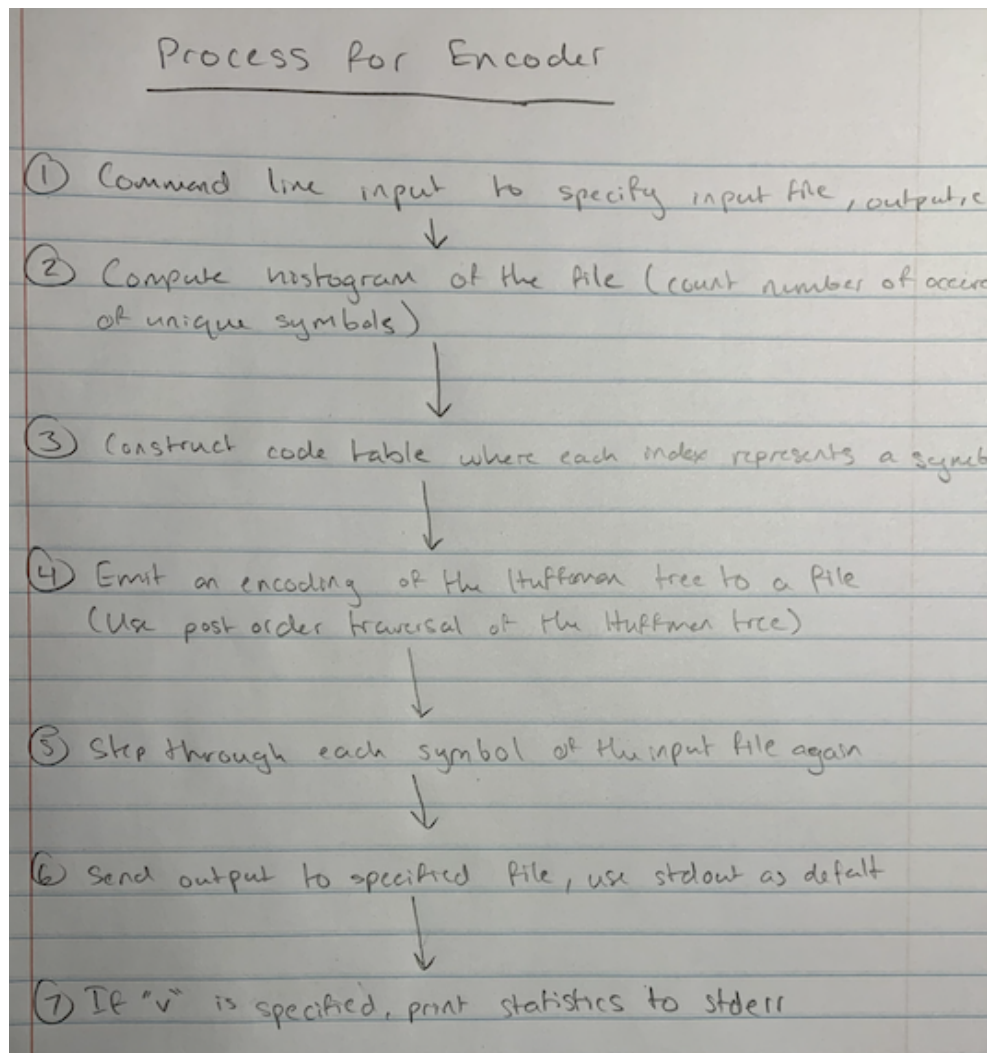 Process for Encoder
① Command line input to specify input file, output,
② Compute histogram of the file (count number of
of unique symbols)
③ Construct code table where each index represents a
④ Emit an encoding of the Huffman tree to a file
(Use post order traversal of the Huffman tree)
⑤ Step through each symbol of the input file again
⑥ Send output to specified file, use stdout as defalt
⑦ If "v" is specified, print statistics to stderr